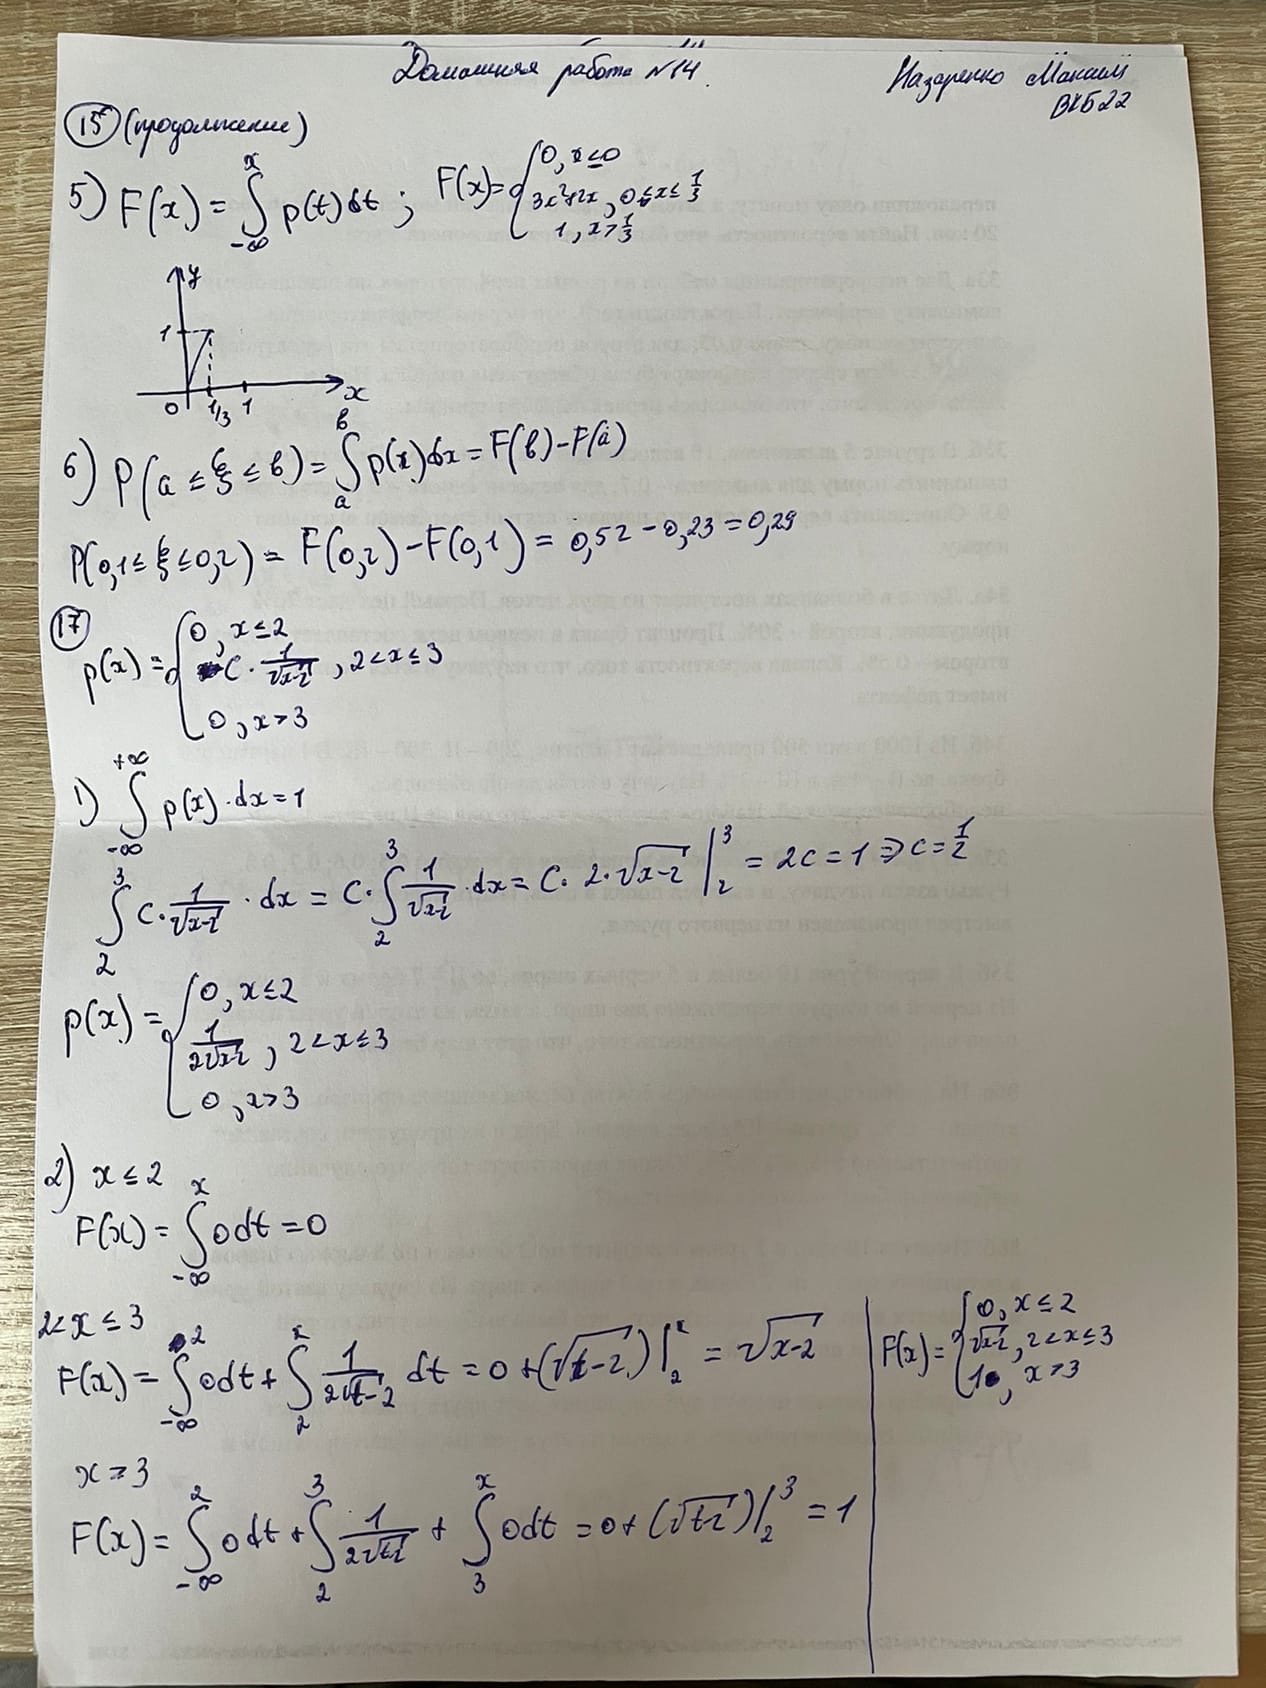 Домашняя работа №14.
Назаренко Максим
ВКБ22
15 (продолжение)
5) F(x) = ∫_{-∞}^{x} p(t)dt ; F(x) = { 0, x ≤ 0
3x²+2x, 0 ≤ x ≤ 1/3
1, x > 1/3
y
1
0 1/3 1 x
6) P(a ≤ ξ ≤ b) = ∫_{a}^{b} p(x)dx = F(b) - F(a)
P(0,1 ≤ ξ ≤ 0,2) = F(0,2) - F(0,1) = 0,52 - 0,23 = 0,29
17
p(x) = { 0, x ≤ 2
C · 1/√(x-2), 2 < x ≤ 3
0, x > 3
1) ∫_{-∞}^{+∞} p(x) · dx = 1
∫_{2}^{3} C · 1/√(x-2) · dx = C · ∫_{2}^{3} 1/√(x-2) · dx = C · 2 · √(x-2) |_{2}^{3} = 2C = 1 ⇒ C = 1/2
p(x) = { 0, x ≤ 2
1/(2√(x-2)), 2 < x ≤ 3
0, x > 3
2) x ≤ 2
F(x) = ∫_{-∞}^{x} 0dt = 0
2 < x ≤ 3
F(x) = ∫_{-∞}^{2} 0dt + ∫_{2}^{x} 1/(2√(t-2)) dt = 0 + (√(t-2)) |_{2}^{x} = √(x-2)
x > 3
F(x) = ∫_{-∞}^{2} 0dt + ∫_{2}^{3} 1/(2√(t-2)) + ∫_{3}^{x} 0dt = 0 + (√(t-2)) |_{2}^{3} = 1
F(x) = { 0, x ≤ 2
√(x-2), 2 < x ≤ 3
1, x > 3